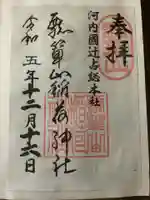 奉拝
河内國辻占総本社
瓢箪山稲荷神社
令和五年十二月十六日